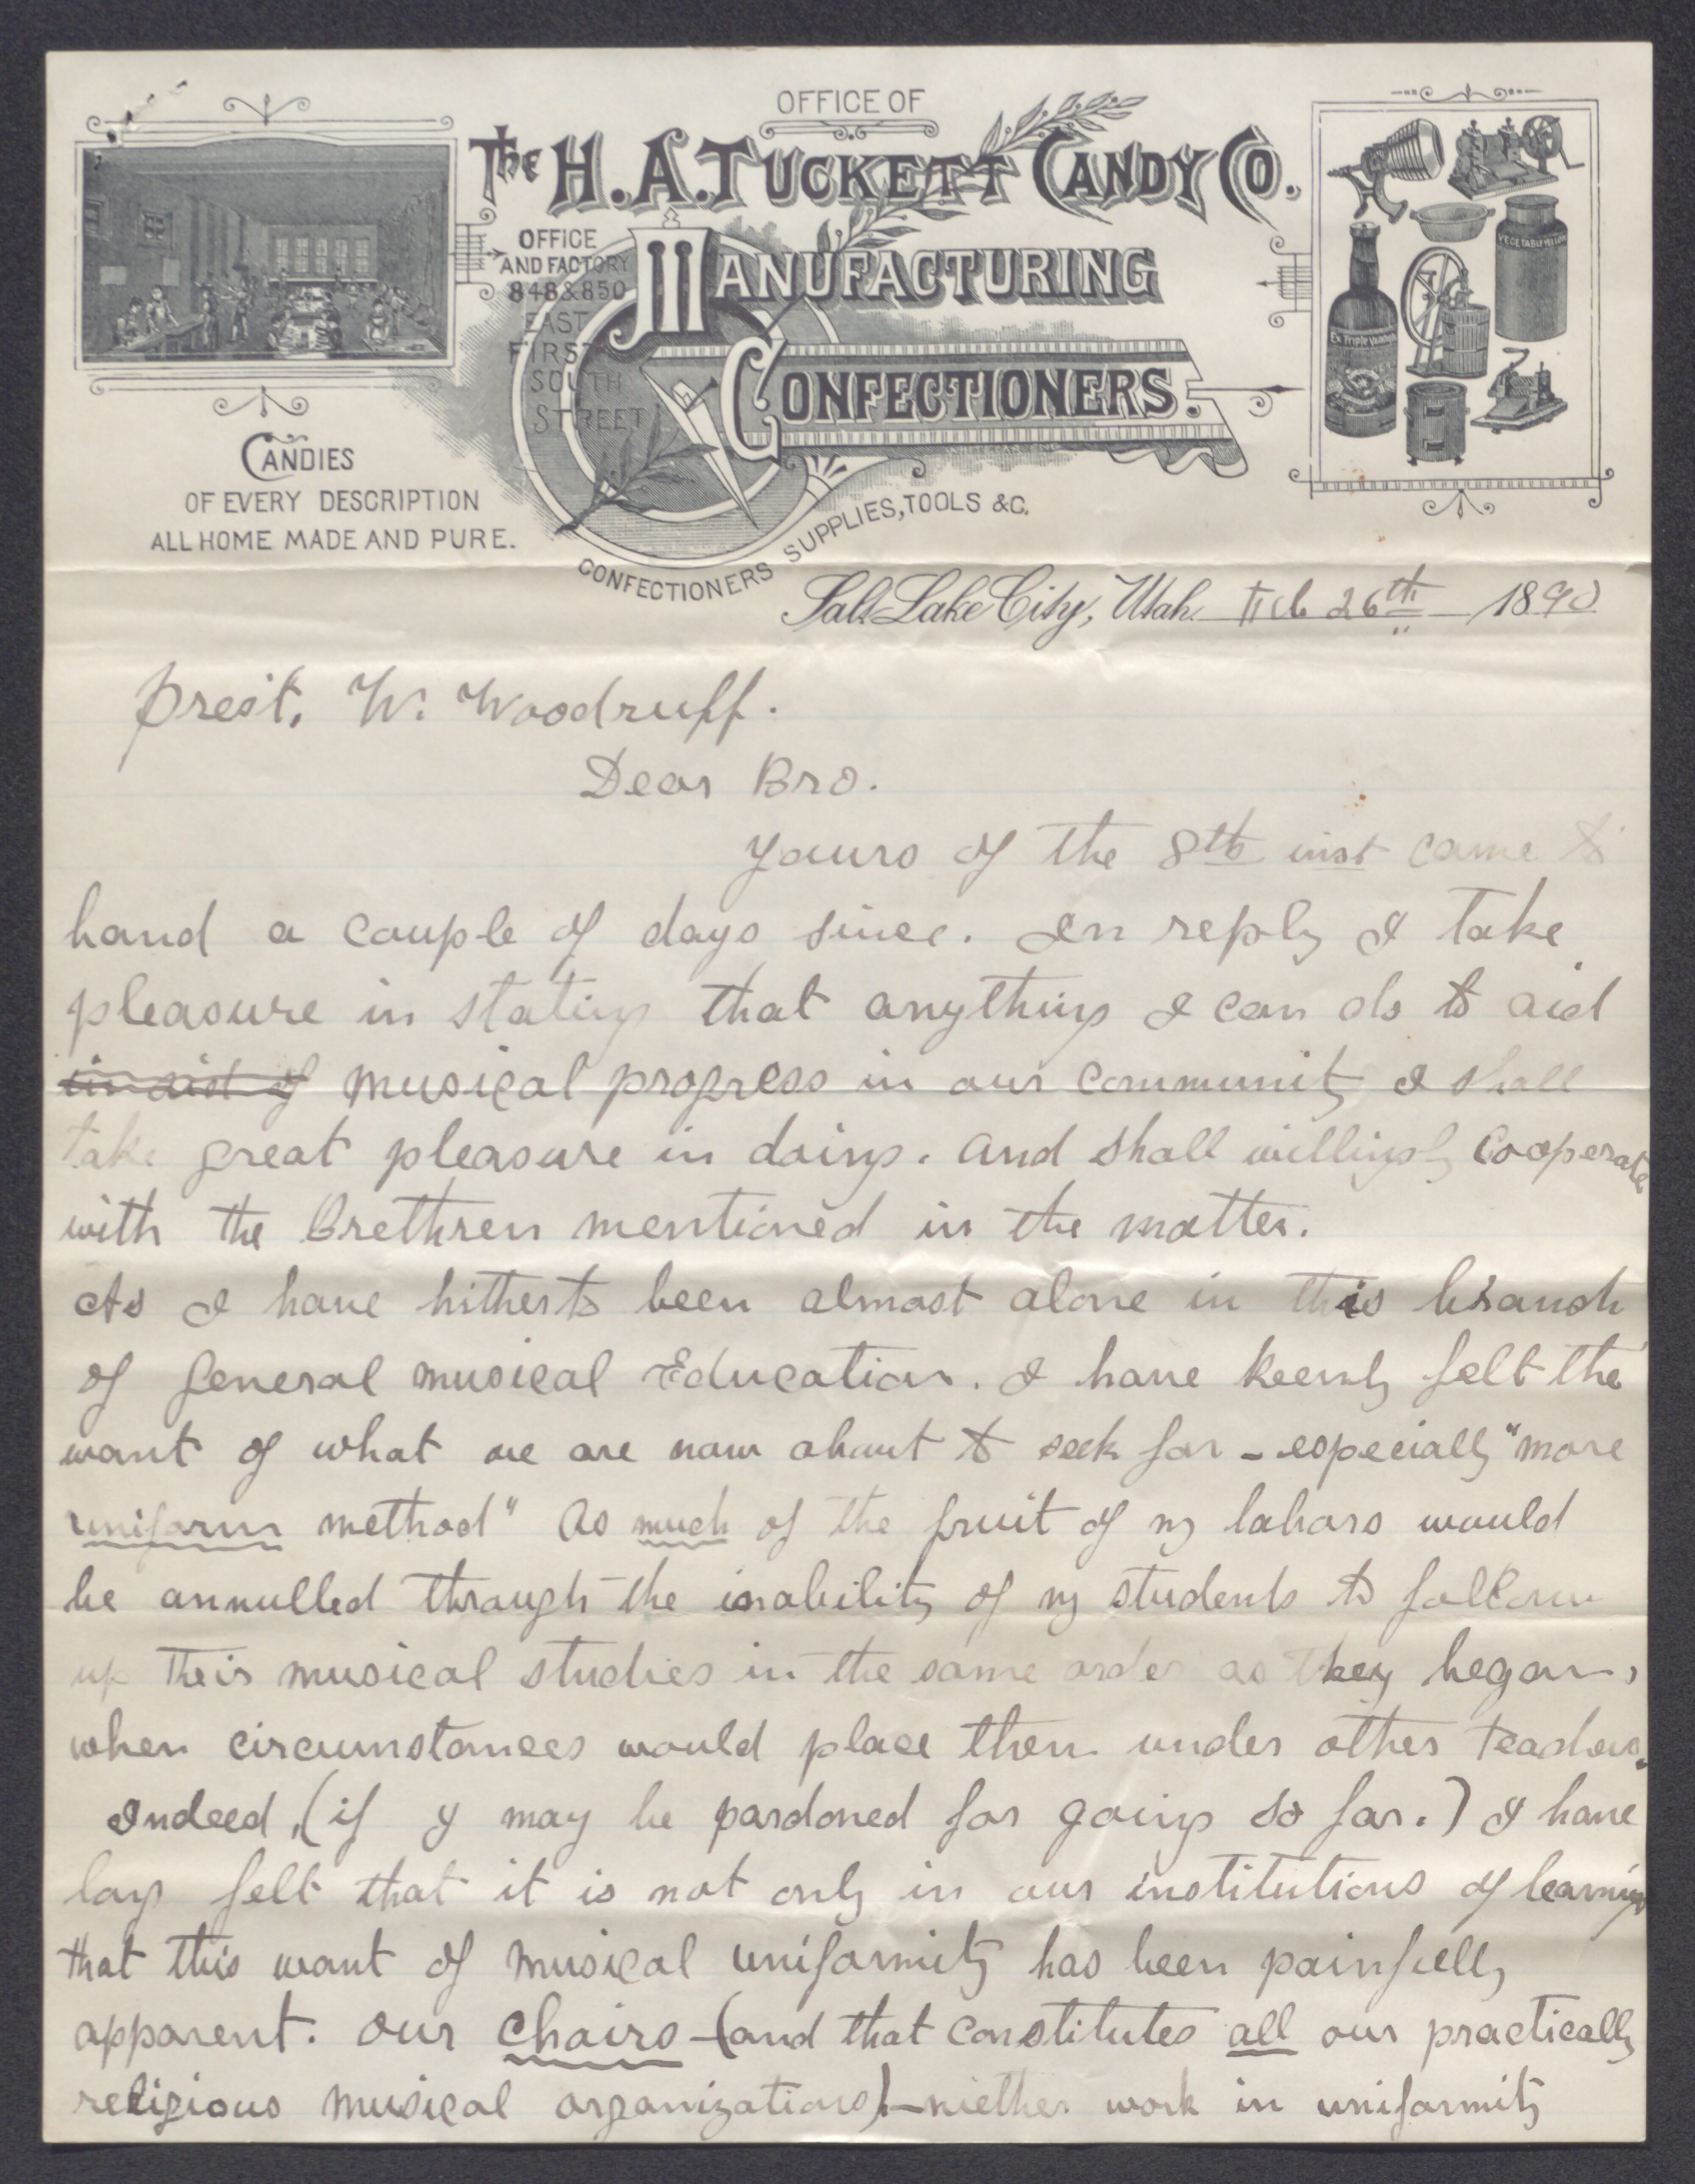 OFFICE OF
THE H. A. TUCKETT CANDY CO.
OFFICE
AND FACTORY
848 & 850
EAST
FIRST
SOUTH
STREET
MANUFACTURING
CONFECTIONERS.
VEGETABLE
Ex Triple Vanilla
CANDIES
OF EVERY DESCRIPTION
ALL HOME MADE AND PURE.
CONFECTIONERS SUPPLIES, TOOLS &C.
Salt Lake City, Utah. Feb 26th 1890
Prest. W. Woodruff.
Dear Bro.
Yours of the 8th inst came to
hand a couple of days since. In reply I take
pleasure in stating that anything I can do to aid
in aid of musical progress in our community I shall
take great pleasure in doing. and shall willingly cooperate
with the Brethren mentioned in the matter.
As I have hitherto been almost alone in this branch
of general musical Education. I have keenly felt the
want of what we are now about to seek for - especially "more
uniform method" as much of the fruit of my labors would
be annulled through the inability of my students to follow
up their musical studies in the same order as they began,
when circumstances would place them under other teachers.
Indeed, (if I may be pardoned for going so far.) I have
long felt that it is not only in our institutions of learning
that this want of musical uniformity has been painfully
apparent. Our choirs - (and that constitutes all our practically
religious musical organizations) - niether work in uniformity